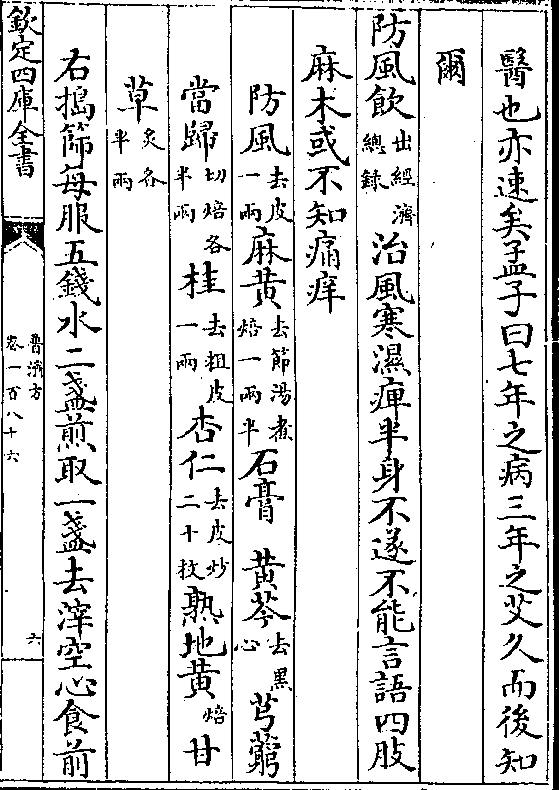 醫也亦速矣孟子曰七年之病三年之艾久而後知
爾
防風飲出經濟總録治風寒濕痺半身不遂不能言語四肢
麻木或不知痛痒
防風去皮一兩麻黄去節湯煮焙一兩半石膏 黄芩去黑心芎藭
當歸切焙各半兩桂去粗皮一兩杏仁去皮炒二十枚熟地黄焙甘
草炙各半兩
右搗篩每服五錢水二盞煎取一盞去滓空心食前
欽定四庫全書
普濟方
卷一百八十六
六